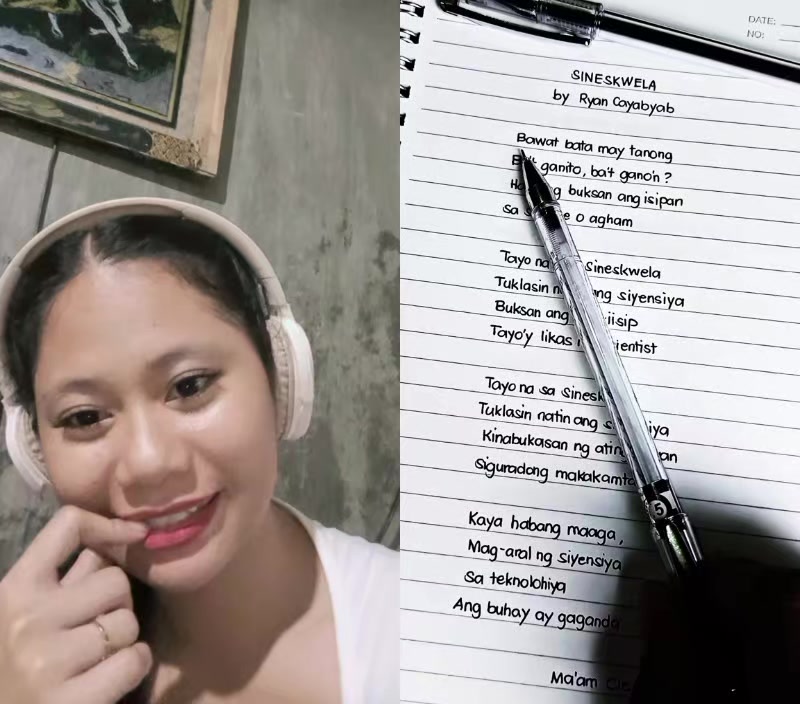 DATE:
NO:
SINESKWELA
by Ryan Cayabyab
Bawat bata may tanong
ganito, ba't gano'n?
buksan ang isipan
sa o agham
Tayo na Sineskwela
Tuklasin ang siyensiya
Buksan ang
Tayo'y likas
Tayo na sa
Tuklasin natin ang
Kinabukasan ng
Siguradong
Kaya habang maaga,
Mag-aral ng siyensiya
Sa teknolohiya
Ang buhay ay gaganda
Ma'am
5